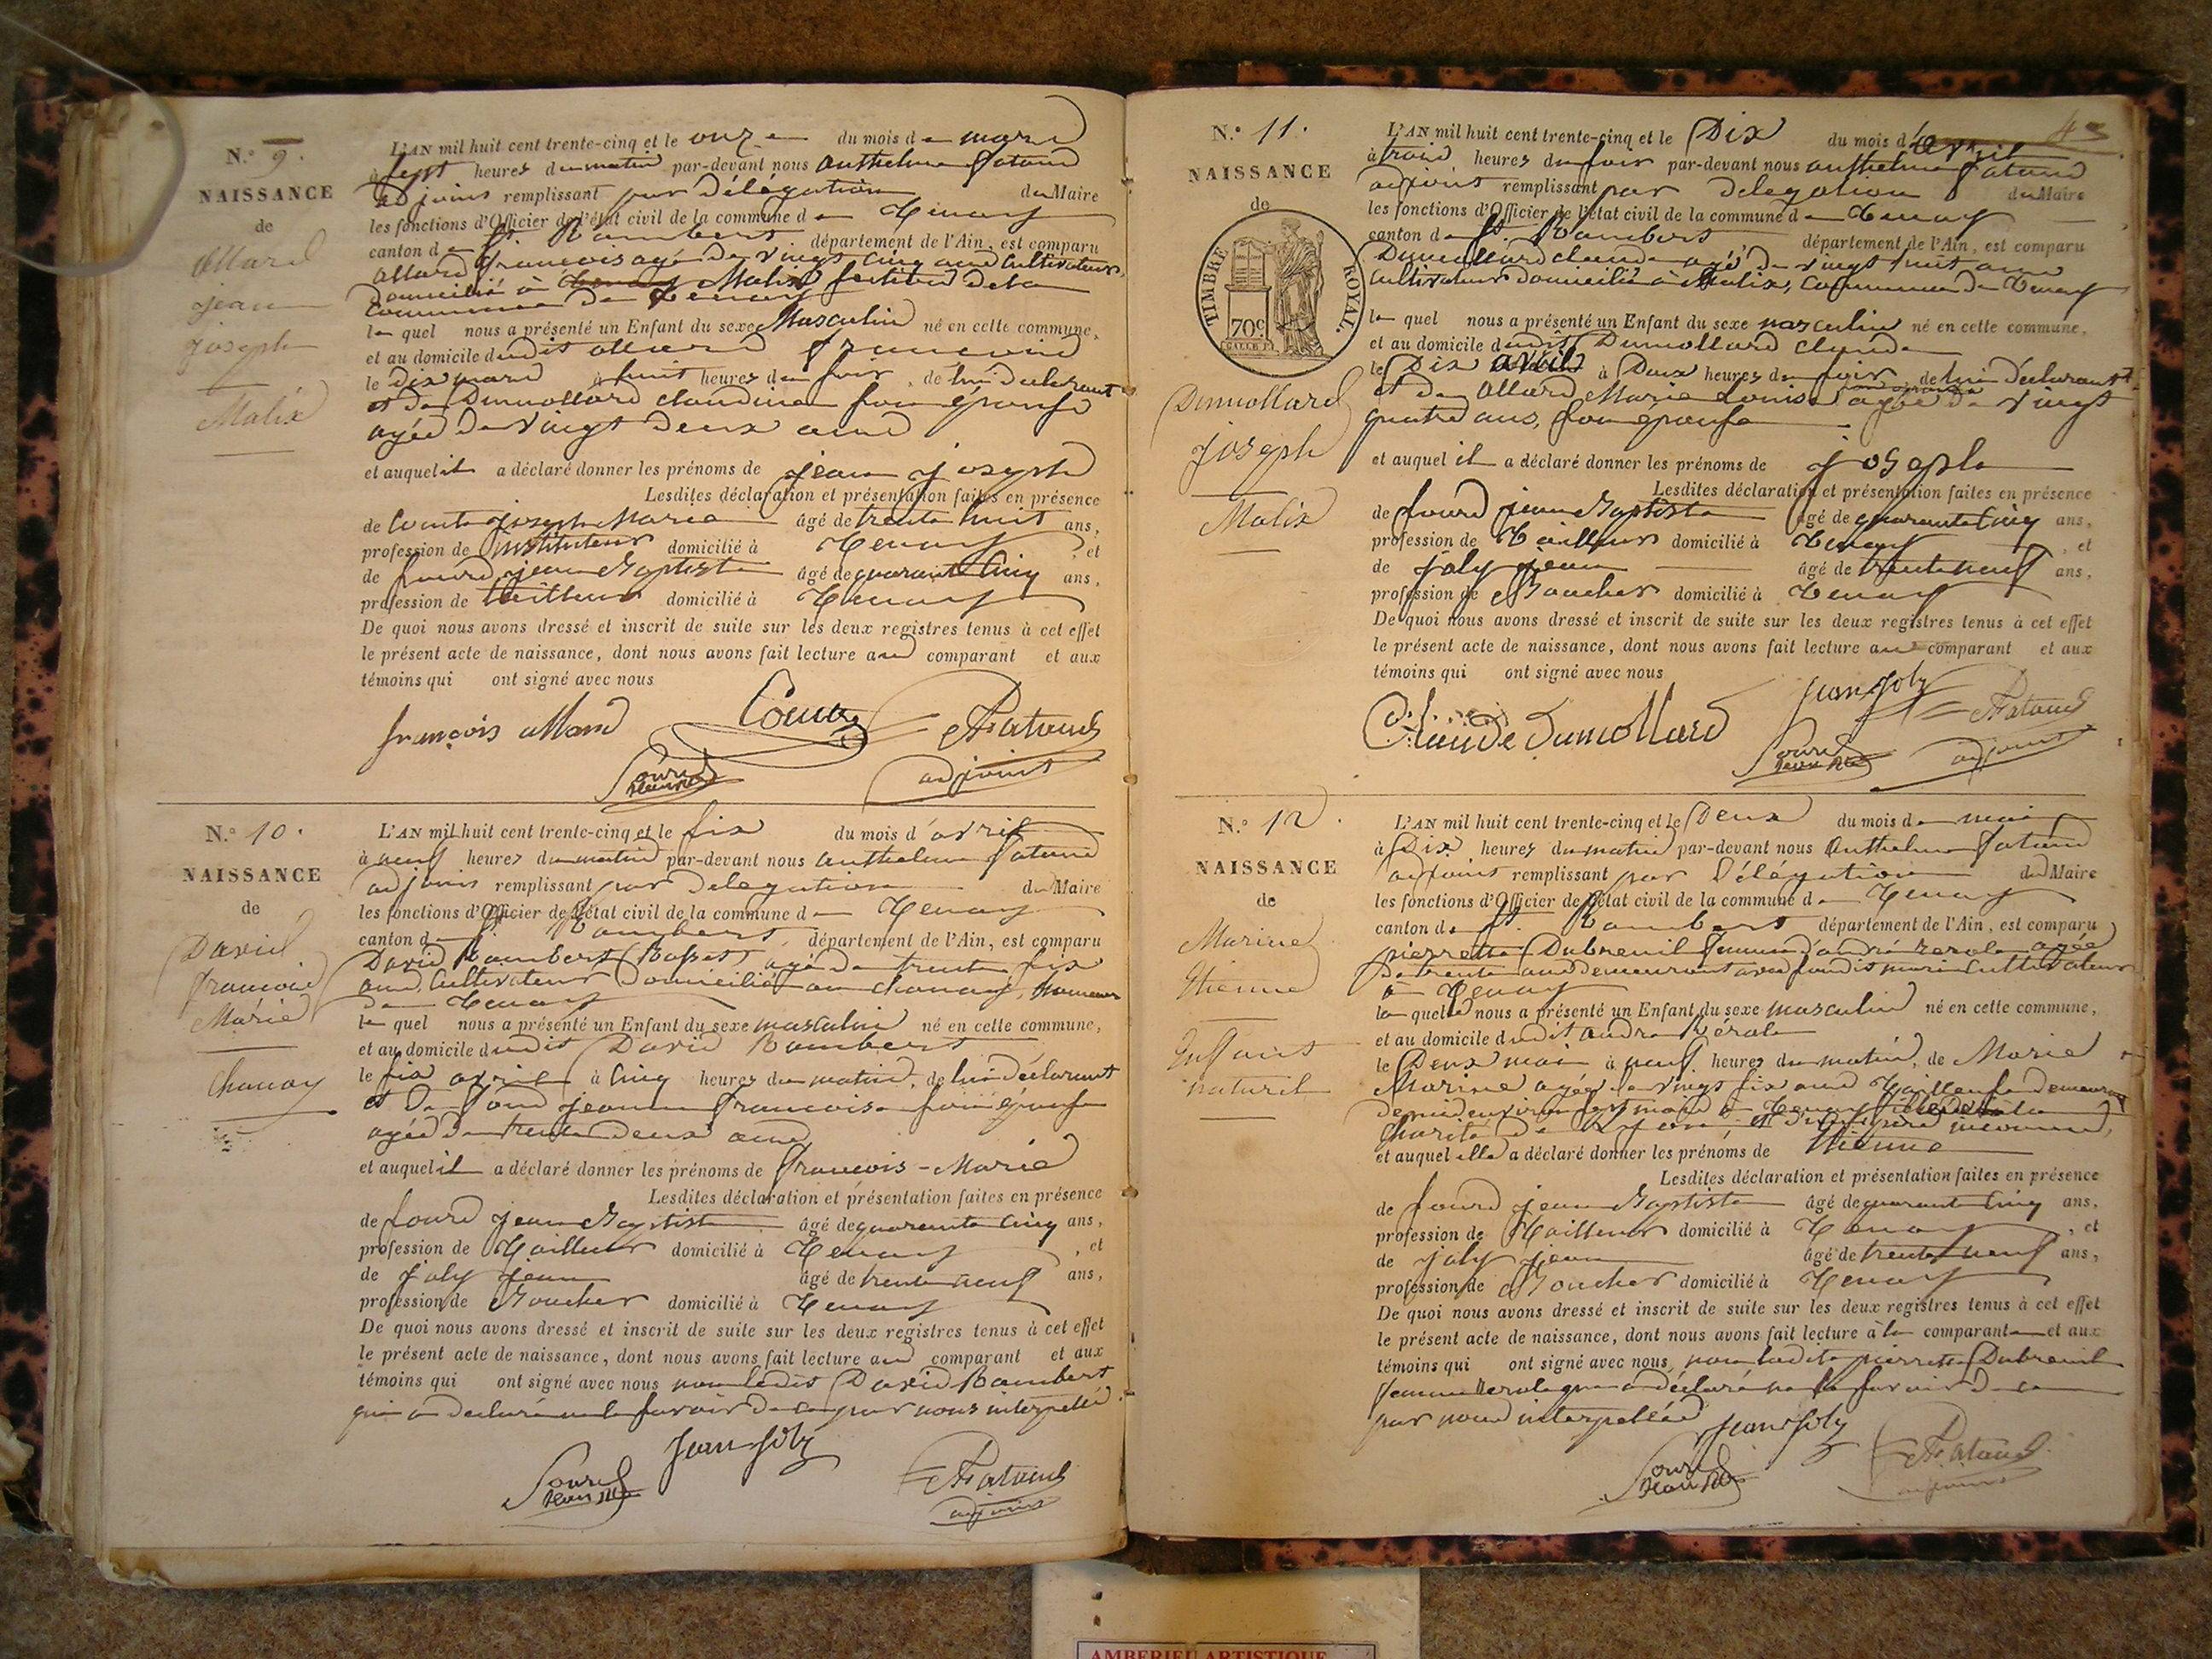 N.° 9.
NAISSANCE
de
Allard
jean
joseph
Malix
L'AN mil huit cent trente-cinq et le onze du mois de mars
à sept heures du matin par-devant nous Anthelme
adjoint remplissant par Délégation du Maire
les fonctions d'Officier de l'état civil de la commune de Tenay
canton de St. Rambert département de l'Ain, est comparu
allard françois agé de vingt cinq ans Cultivateur
domicilié à Malix section de la
Commune de Tenay
le quel nous a présenté un Enfant du sexe Masculin né en cette commune,
et au domicile dudit allard françois
le dix mars à huit heures du soir, de lui déclarant
et de Dumollard claudine son épouse
agée de vingt deux ans
et auquel il a déclaré donner les prénoms de jean joseph
Lesdites déclaration et présentation faites en présence
de Joseph Marie âgé de trente huit ans,
profession de instituteur domicilié à Tenay, et
de jean Baptiste âgé de quarante Cinq ans,
profession de tailleur domicilié à Tenay
De quoi nous avons dressé et inscrit de suite sur les deux registres tenus à cet effet
le présent acte de naissance, dont nous avons fait lecture au comparant et aux
témoins qui ont signé avec nous
françois allard
adjoint
N.° 10.
NAISSANCE
de
David
françois
Marie
Chanay
L'AN mil huit cent trente-cinq et le six du mois d'avril
à neuf heures du matin par-devant nous Anthelme
adjoint remplissant par Délégation du Maire
les fonctions d'Officier de l'état civil de la commune de Tenay
canton de St. Rambert département de l'Ain, est comparu
David Rambert agé de trente six
ans, Cultivateur Domicilié au chanay,
de Tenay
le quel nous a présenté un Enfant du sexe masculin né en cette commune,
et au domicile dudit David Rambert
le six avril à Cinq heures du matin, de lui déclarant
et de jeanne françoise son épouse
agée de trente deux ans
et auquel il a déclaré donner les prénoms de françois - Marie
Lesdites déclaration et présentation faites en présence
de jean Baptiste âgé de quarante Cinq ans,
profession de Tailleur domicilié à Tenay, et
de joly jean âgé de trente neuf ans,
profession de Boucher domicilié à Tenay
De quoi nous avons dressé et inscrit de suite sur les deux registres tenus à cet effet
le présent acte de naissance, dont nous avons fait lecture au comparant et aux
témoins qui ont signé avec nous non ledit David Rambert
qui a declaré ne le savoir de ce par nous interpellé
Jean Joly
adjoint
43
N.° 11.
NAISSANCE
de
TIMBRE ROYAL.
70c
Dumollard
joseph
Malix
L'AN mil huit cent trente-cinq et le Dix du mois d'avril
à trois heures du soir par-devant nous anthelme
adjoint remplissant par Delegation du Maire
les fonctions d'Officier de l'état civil de la commune de Tenay
canton de St. Rambert département de l'Ain, est comparu
Dumollard claude agé de vingt huit ans
Cultivateur domicilié à Malix, Commune de Tenay
le quel nous a présenté un Enfant du sexe masculin né en cette commune,
et au domicile dudit Dumollard claude
le Dix avril à Deux heures du soir de lui déclarant
et de allard Marie Louise agée de vingt
quatre ans, son épouse
et auquel il a déclaré donner les prénoms de joseph
Lesdites déclaration et présentation faites en présence
de jean Baptiste âgé de quarante Cinq ans,
profession de Tailleur domicilié à Tenay, et
de joly jean âgé de trente neuf ans,
profession de Boucher domicilié à Tenay
De quoi nous avons dressé et inscrit de suite sur les deux registres tenus à cet effet
le présent acte de naissance, dont nous avons fait lecture au comparant et aux
témoins qui ont signé avec nous
Jean Joly
Claude Dumollard
adjoint
N.° 12.
NAISSANCE
de
Marine
Etienne
Enfant
naturel
L'AN mil huit cent trente-cinq et le Deux du mois de mai
à Dix heures du matin par-devant nous Anthelme
adjoint remplissant par Délégation du Maire
les fonctions d'Officier de l'état civil de la commune de Tenay
canton de St. Rambert département de l'Ain, est comparu
pierrette Dubreuil femme d'andré agée
de trente ans demeurant avec sondit mari Cultivateur
à Tenay
la quelle nous a présenté un Enfant du sexe masculin né en cette commune,
et au domicile dudit andré
le Deux mai à neuf heures du matin, de Marie
Marine agée de vingt six ans Tailleuse demeurant
depuis environ sept mois à Tenay fille de la
Charité de Lyon et d'un père inconnu,
et auquel elle a déclaré donner les prénoms de Etienne
Lesdites déclaration et présentation faites en présence
de jean Baptiste âgé de quarante Cinq ans,
profession de Tailleur domicilié à Tenay, et
de joly jean âgé de trente neuf ans,
profession de Boucher domicilié à Tenay
De quoi nous avons dressé et inscrit de suite sur les deux registres tenus à cet effet
le présent acte de naissance, dont nous avons fait lecture à la comparante et aux
témoins qui ont signé avec nous, non ladite pierrette Dubreuil
femme qui a déclaré ne le savoir de ce
par nous interpellée
Jean Joly
adjoint
AMBERIEU ARTISTIQUE